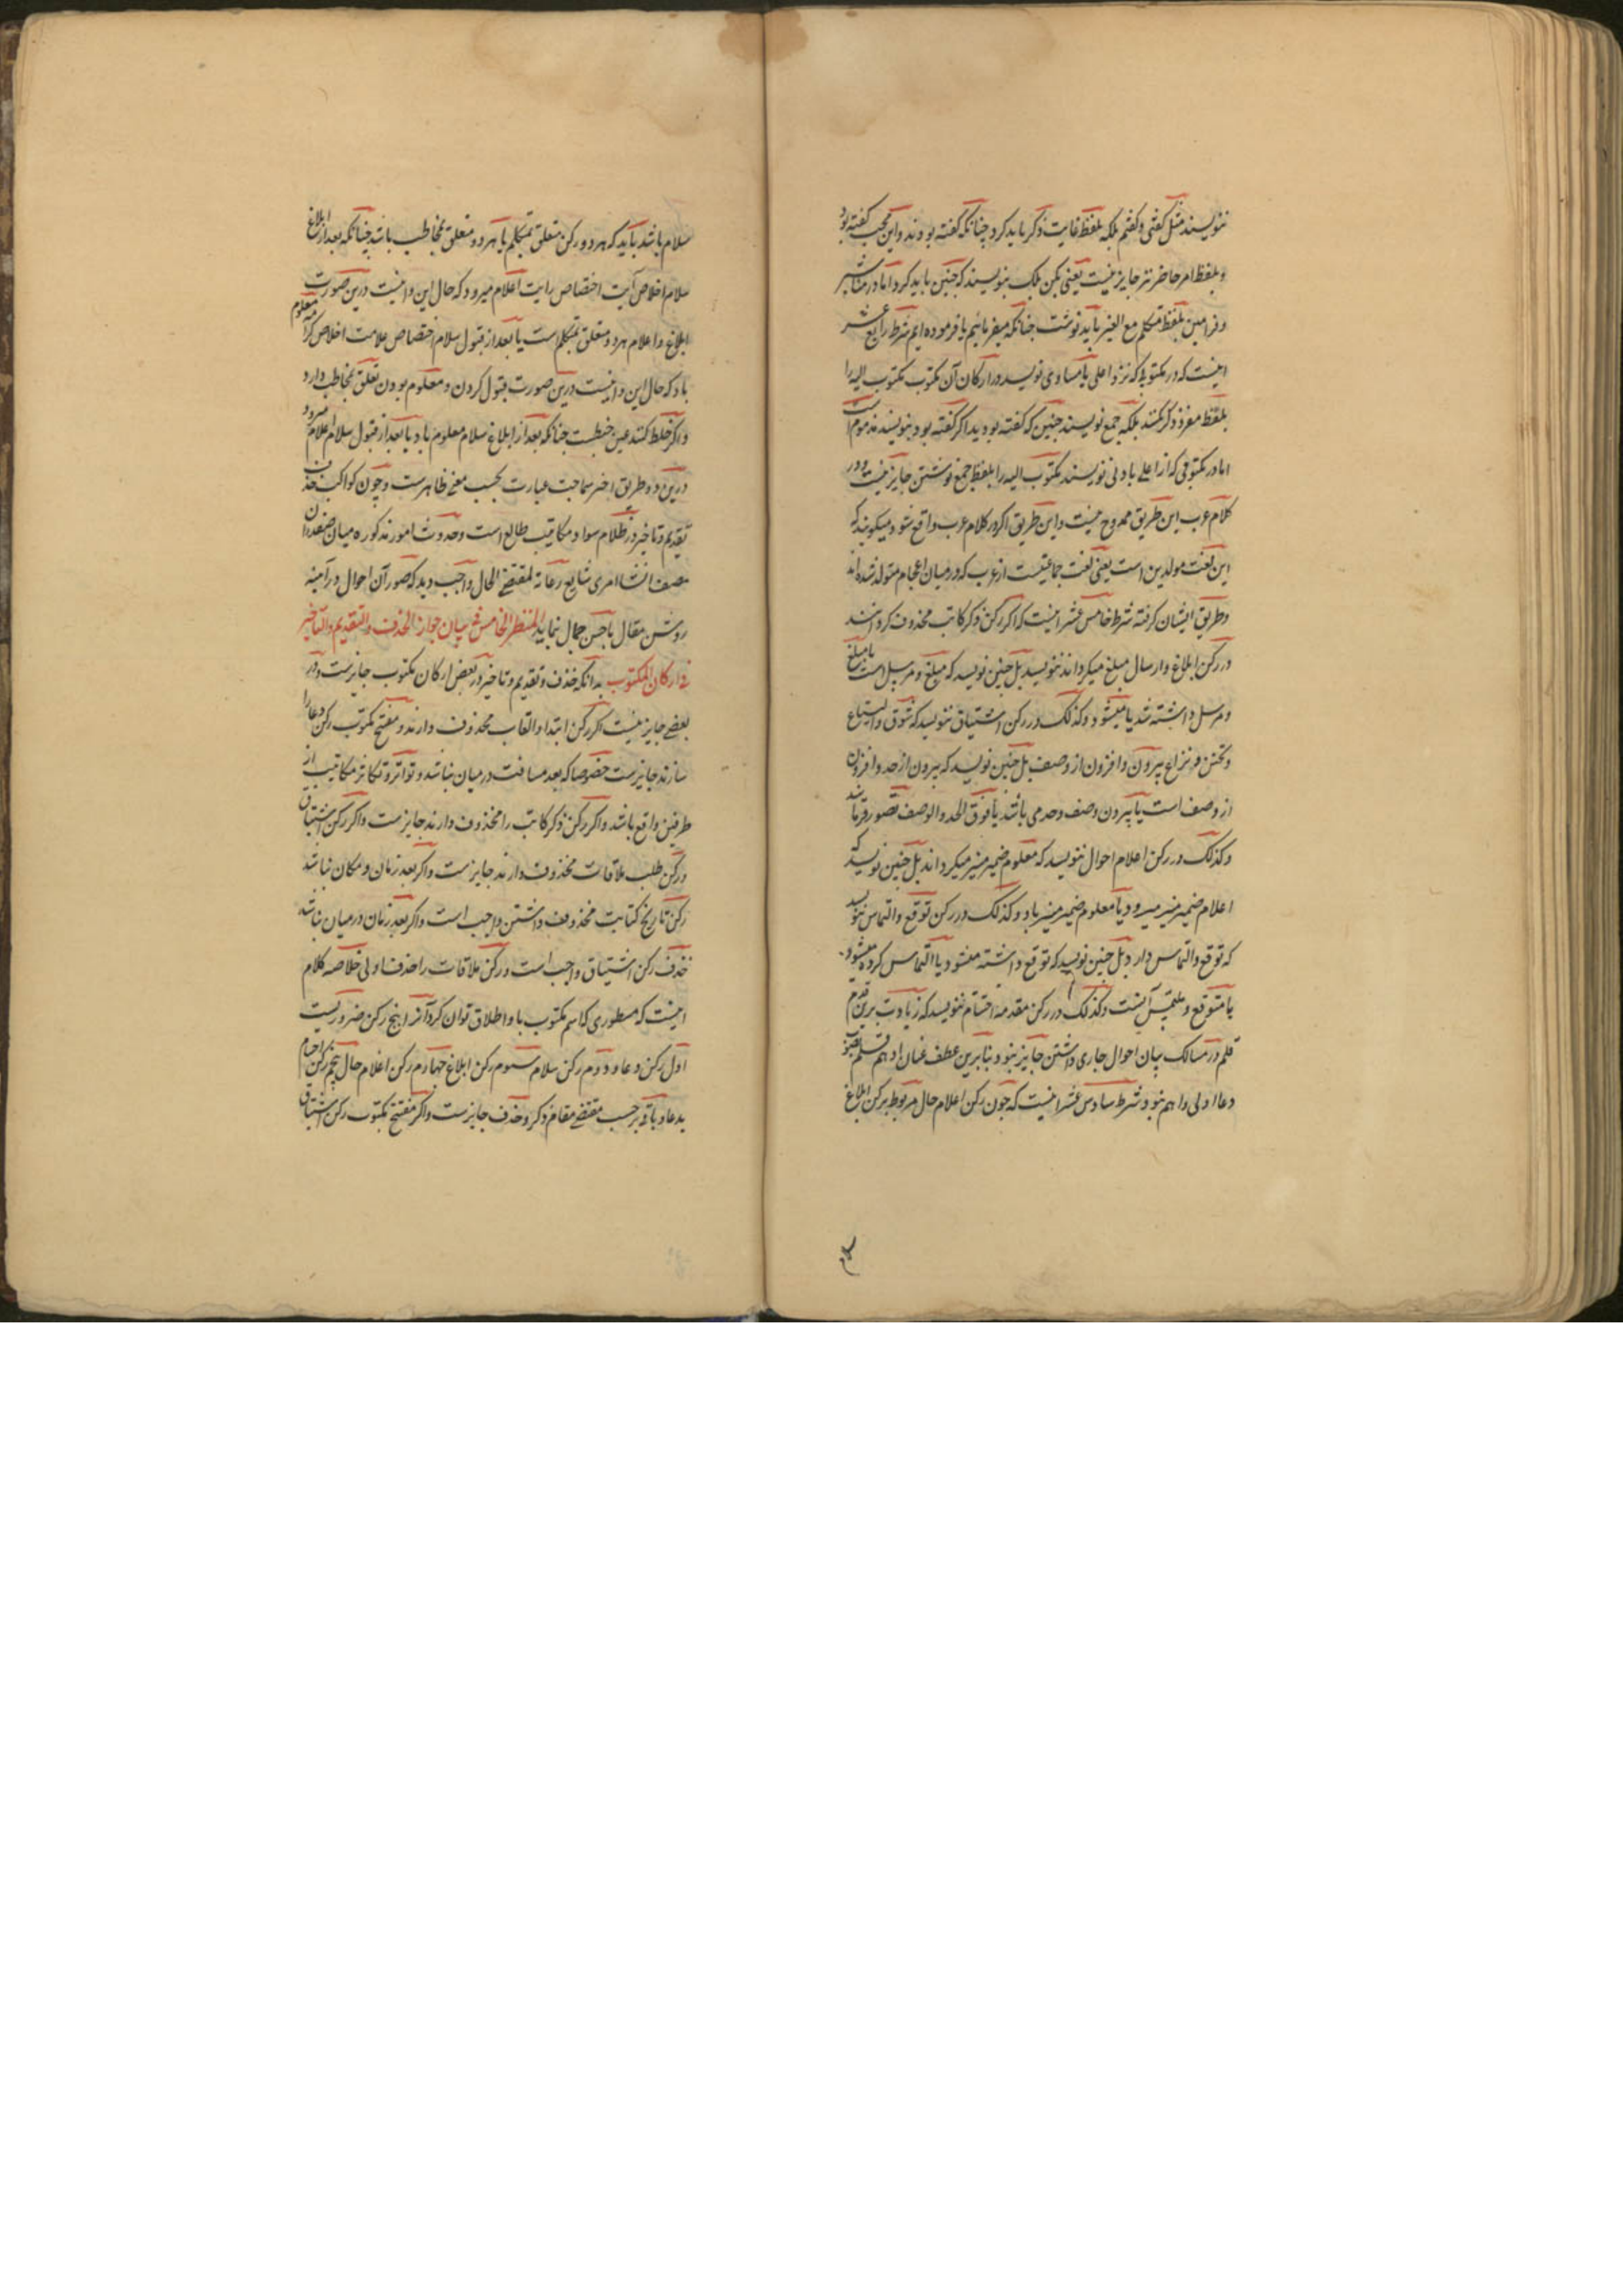 ننویسند مثل گفتی و گفتم بلکه بلفظ غایت ذکر باید کرد چنانکه گفته بودند و این محب گفته بود
و بلفظ امر حاضر نیز جایز نیست یعنی بکن بلک بنویسند که چنین باید کرد اما در مناشیر
و فرامین بلفظ متکلم مع الغیر باید نوشت چنانکه میفرمائیم یا فرموده ایم شرط رابع عشر
اینست که در مکتوبی که نزد اعلی یا مساوی نویسد در ارکان آن مکتوب مکتوب الیه را
بلفظ مفرد ذکر نکنند بلکه جمع نویسند چنین که گفته بودید اگر گفته بود بنویسند مذموم است
اما در مکتوبی که از اعلی بادنی نویسند مکتوب الیه را بلفظ جمع نوشتن جایز نیست و در
کلام عرب این طریق ممدوح نیست و این طریق اگر در کلام عرب واقع شود میگویند که
این لغت مولدین است یعنی لغت جماعتیست از عرب که در میان اعجام متولد شده اند
و طریق ایشان گرفته شرط خامس عشر اینست که اگر رکن ذکر کاتب محذوف کرده باشند
در رکن ابلاغ و ارسال مبلغ میگرداند ننویسد بل چنین نویسد که مبلغ و مرسل است یا مبلغ
و مرسل داشته شد یا میشود و کذلک در رکن اشتیاق ننویسد که شوق و التیاع
و تحنن و نزاع بیرون و افزون از وصف بل چنین نویسد که بیرون از حد و افزون
از وصف است یا بیرون وصف وحدی باشد یا فوق الحد والوصف تصور فرمایند
و کذلک در رکن اعلام احوال ننویسد که معلوم ضمیر منیر میگرداند بل چنین نویسد که
اعلام ضمیر منیر میرود یا معلوم ضمیر منیر باد و کذلک در رکن توقع و التماس ننویسد
که توقع و التماس دارد بل چنین نویسد که توقع داشته میشود یا التماس کرده میشود
یا متوقع و ملتمس آنست و کذلک در رکن مقدمه اختتام ننویسد که زیادت برین قدم
قلم در مسالک بیان احوال جاری داشتن جایز نبود و بنابرین عطف عنان ادهم قلم بصوب
دعا اولی و اهم نبود شرط سادس عشر اینست که چون رکن اعلام حال مربوط برکن ابلاغ
سلام باشد باید که هر دو رکن متعلق بمتکلم یا هر دو متعلق بمخاطب باشد چنانکه بعد از ابلاغ
سلام اخلاص آیت اختصاص رایت اعلام میرود که حال این و اینست درین صورت
ابلاغ و اعلام هر دو متعلق بمتکلم است یا بعد از قبول سلام اختصاص علامت اخلاص کرامت معلوم
باد که حال این و اینست درین صورت قبول کردن و معلوم بودن تعلق بمخاطب دارد
و اگر خلط کنند عین خبطست چنانکه بعد از ابلاغ سلام معلوم باد یا بعد از قبول سلام اعلام میرود
درین دو طریق اخیر سماجت عبارت بحسب معنی ظاهرست و چون کواکب حذف
تقدیم و تاخیر در ظلام سواد مکاتیب طالع است و حدوث امور مذکوره میان صفدران
مصف انشا امری شایع رعایة لمقتضی الحال واجب دید که صور آن احوال در آمینه
روشن مقال باحسن جمال نماید المنظر الخامس فی بیان جواز الحذف والتقدیم والتاخیر
فی ارکان المکتوب بدانکه حذف و تقدیم و تاخیر در بعض ارکان مکتوب جایزست و در
بعضی جایز نیست اگر رکن ابتدا و القاب محذوف دارند و مفتتح مکتوب رکن دعا را
سازند جایزست خصوصا که بعد مسافت در میان نباشد و تواتر و تکاثر مکاتیب از
طرفین واقع باشد و اگر رکن ذکر کاتب را محذوف دارند جایزست و اگر رکن اشتیاق
و رکن طلب ملاقات محذوف دارند جایزست و اگر بعد زمان و مکان نباشد
رکن تاریخ کتابت محذوف داشتن واجب است و اگر بعد زمان در میان نباشد
حذف رکن اشتیاق واجب است و رکن ملاقات را حذف اولی خلاصه کلام
اینست که مسطوری که اسم مکتوب باو اطلاق توان کرد آنرا پنج رکن ضروریست
اول رکن دعا و دوم رکن سلام سیوم رکن ابلاغ چهارم رکن اعلام حال پنجم رکن اختتام
بدعا و باقی بر حسب مقتضی مقام ذکر و حذف جایزست و اگر مفتتح مکتوب رکن اشتیاق